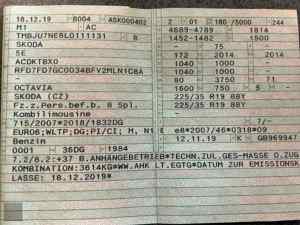 18.12.19 8004 ASK000402 2 01 180 /5000 244
M1 AC 4689-4789 1814
TMBJU7NE6L0111131 8 1452-1482 1500
SKODA - 75 -
5E 172 2014 2014
ACDKTBX0 1040 1000 -
1040 1000 -
80 3750 71
OCTAVIA 1600 750 5 -
SKODA (CZ) 225/35 R19 88Y
Fz.z.Pers.bef.b. 8 Spl. 225/35 R19 88Y
Kombilimousine -
715/2007*2018/1832DG 11 /-
EURO6;WLTP;DG;PI/CI; M, N1 e8*2007/46*0318*09
Benzin 12.11.19 K GB969947
0001 36DG 1984
7.2/8.2:*37 B.ANHÄNGEBETRIEB*TECHN.ZUL.GES-MASSE D.ZUG
KOMBINATION:3614KG*WW.AHK LT.EGTG*DATUM ZUR EMISSIONSK
LASSE: 18.12.2019*